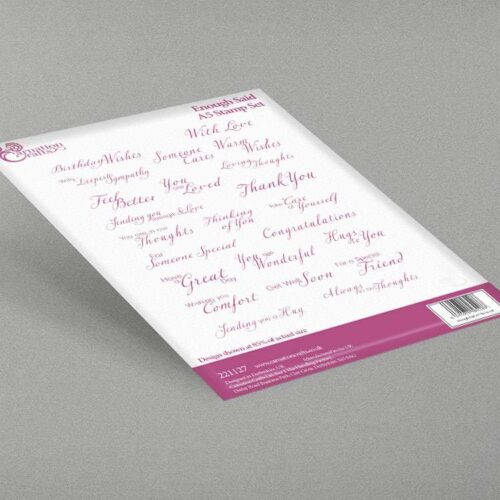 Carnation Crafts
Enough Said
A5 Stamp Set
With Love
Birthday Wishes
Someone Cares
Warm Wishes
With Deepest Sympathy
Loving Thoughts
Feel Better
You are Loved
Thank You
Sending you Love
Take Care of Yourself
You are in our Thoughts
Thinking of You
Congratulations
For Someone Special
You are Wonderful
Hugs to You
Have a Great Day
Get Well Soon
For a Special Friend
Wishing you Comfort
Always in our Thoughts
Sending you a Hug
Design shown at 85% of actual size
221127
www.carnationcrafts.co.uk
Designed in Derbyshire, UK
Manufactured in the UK